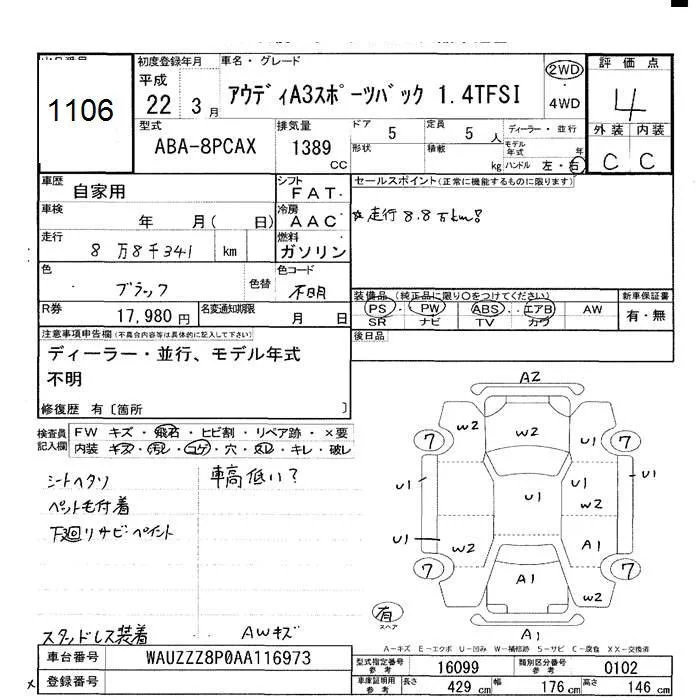 初度登録年月 車名・グレード 評価点
1106
平成 22 3月 アウディA3スポーツバック 1.4TFSI 2WD・4WD 4
型式 排気量 ドア 5 定員 5人 ディーラー・並行 外装 内装
ABA-8PCAX 1389 CC 形状 積載 kg モデル年式 年 ハンドル 左・右 C C
車歴 自家用 シフト FAT セールスポイント(正常に機能するものに限ります)
車検 年 月( 日) 冷房 AAC ☆走行8.8万km!
走行 8万8千341 km 燃料 ガソリン
色 ブラック 色替 色コード 不明
R券 17,980円 名変通知期限 月 日
装備品(純正品に限り○をつけてください) 新車保証書
PS・PW ABS・エアB AW 有・無
SR ナビ TV カワ
注意事項申告欄(不具合内容等は具体的に記入して下さい) 後日品
ディーラー・並行、モデル年式
不明
修復歴 有〔箇所 〕
検査員記入欄 FW キズ・飛石・ヒビ割・リペア跡・×要
内装 キズ・汚レ・コゲ・穴・スレ・キレ・破レ
シートヘタリ 車高低い?
ペット毛付着
下廻リサビ・ペイント
スタッドレス装着 AWキズ
A2
W2 W2 U1
7 7
U1 U1 U1 U1
W2
U1 W2 A1
7 A1 7
有 スペア
A1
A-キズ E-エクボ U-凹み W-補修跡 S-サビ C-腐食 XX-交換済
車台番号 WAUZZZ8P0AA116973
登録番号
型式指定番号 参考 16099 類別区分番号 参考 0102
車庫証明用 参考 長さ 429 cm 幅 176 cm 高さ 146 cm